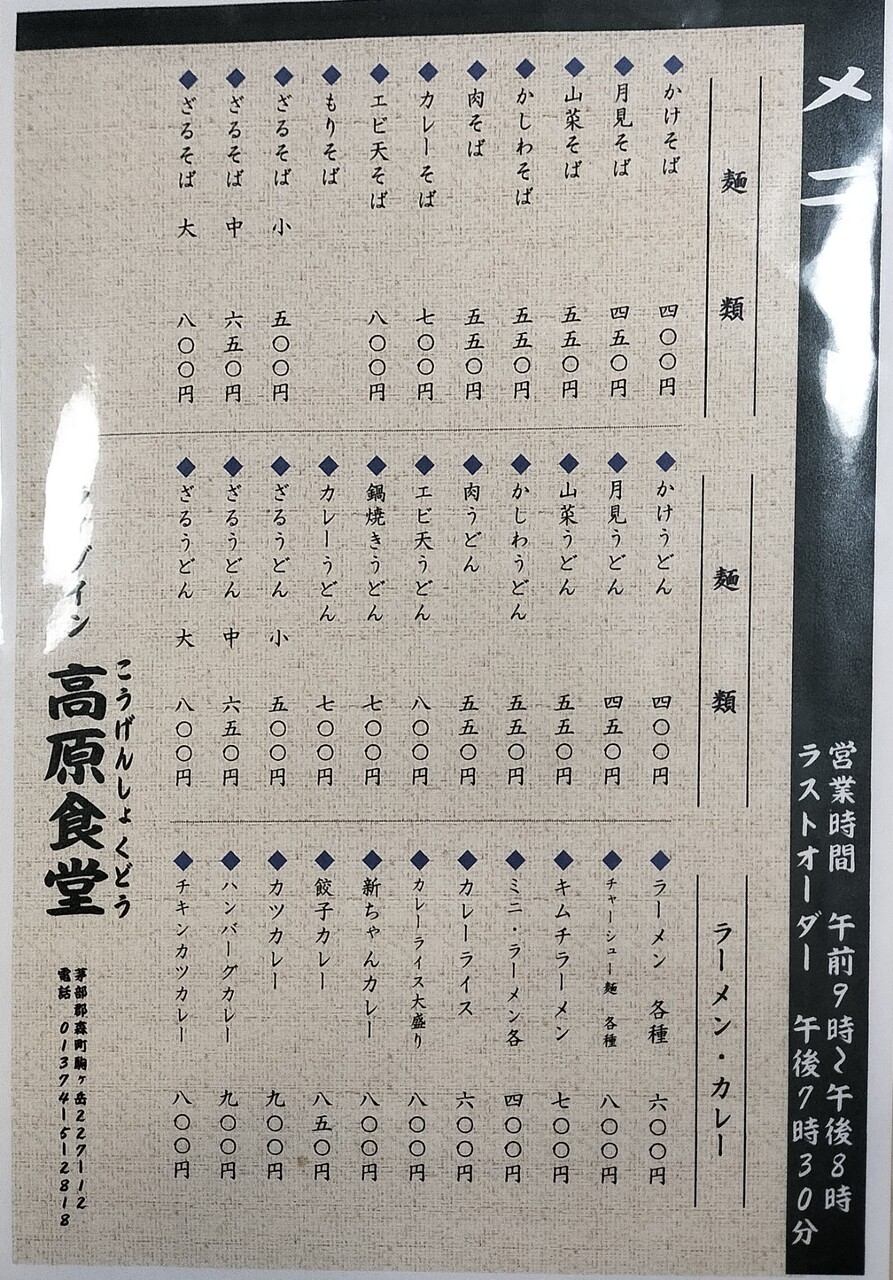 メニ
営業時間 午前9時〜午後8時
ラストオーダー 午後7時30分
麺類
かけそば 四〇〇円
月見そば 四五〇円
山菜そば 五五〇円
かしわそば 五五〇円
肉そば 五五〇円
カレーそば 七〇〇円
エビ天そば 八〇〇円
もりそば
ざるそば 小 五〇〇円
ざるそば 中 六五〇円
ざるそば 大 八〇〇円
麺類
かけうどん 四〇〇円
月見うどん 四五〇円
山菜うどん 五五〇円
かしわうどん 五五〇円
肉うどん 五五〇円
エビ天うどん 八〇〇円
鍋焼きうどん 七〇〇円
カレーうどん 七〇〇円
ざるうどん 小 五〇〇円
ざるうどん 中 六五〇円
ざるうどん 大 八〇〇円
ラーメン・カレー
ラーメン 各種 六〇〇円
チャーシュー麺 各種 八〇〇円
キムチラーメン 七〇〇円
ミニ・ラーメン各 四〇〇円
カレーライス 六〇〇円
カレーライス大盛り 八〇〇円
新ちゃんカレー 八〇〇円
餃子カレー 八五〇円
カツカレー 九〇〇円
ハンバーグカレー 九〇〇円
チキンカツカレー 八〇〇円
こうげんしょくどう
イン 高原食堂
茅部郡森町駒ヶ岳227-112
電話 01374-5-2818